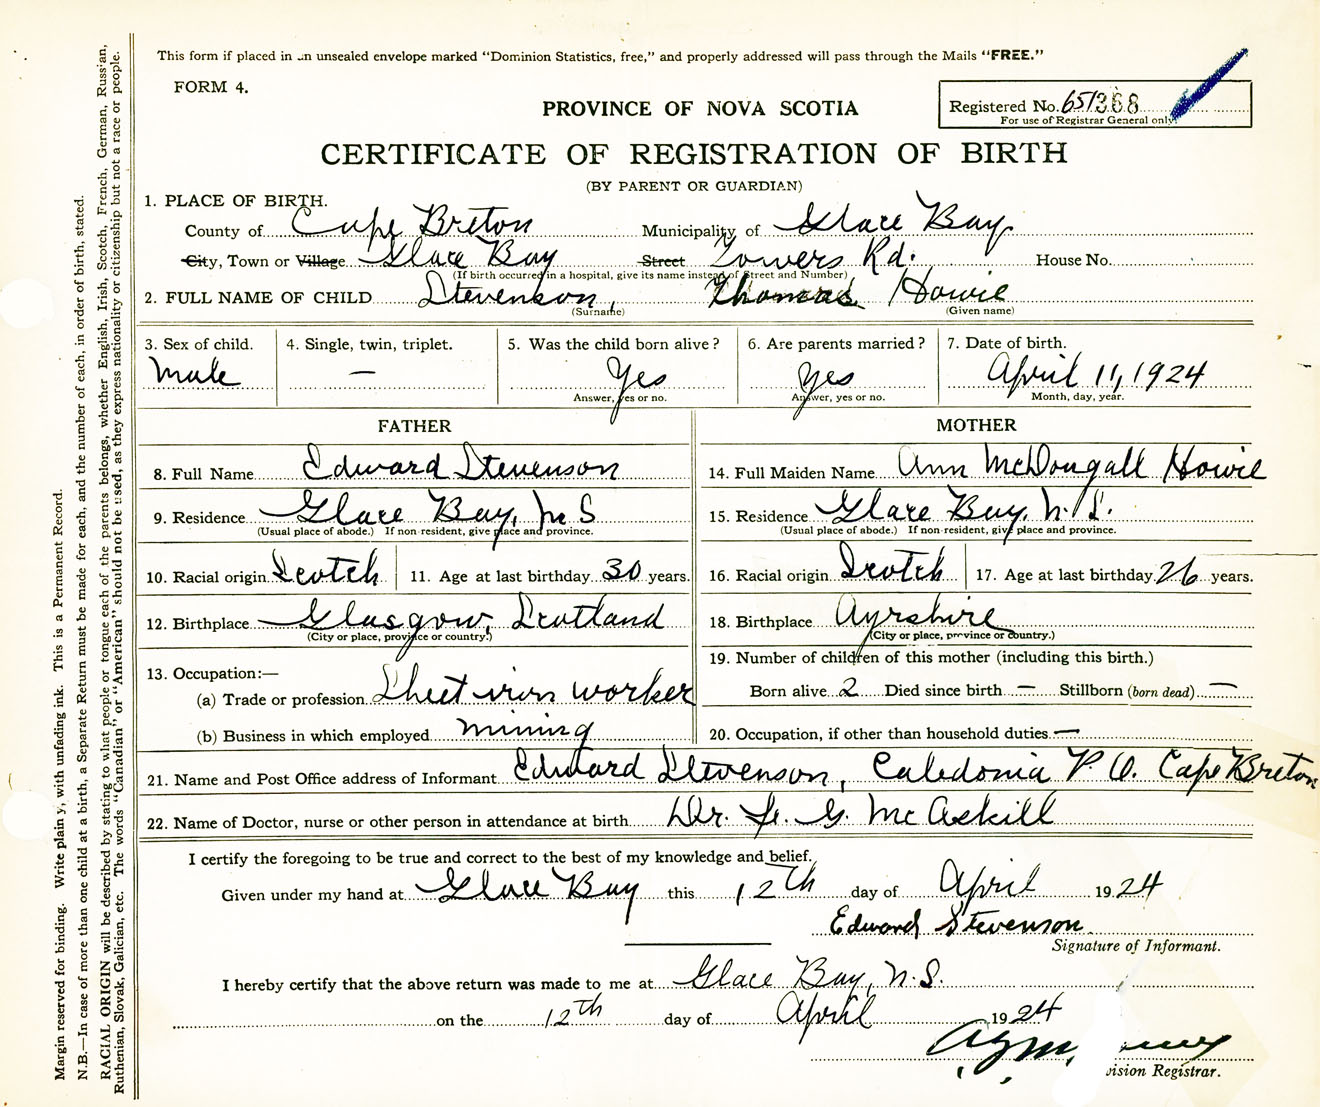 This form if placed in an unsealed envelope marked “Dominion Statistics, free,” and properly addressed will pass through the Mails “FREE.”
FORM 4.
PROVINCE OF NOVA SCOTIA
Registered No. 651368
For use of Registrar General only.
CERTIFICATE OF REGISTRATION OF BIRTH
(BY PARENT OR GUARDIAN)
1. PLACE OF BIRTH.
County of Cape Breton Municipality of Glace Bay
City, Town or Village Glace Bay Street Towers Rd. House No.
(If birth occurred in a hospital, give its name instead of Street and Number)
2. FULL NAME OF CHILD Stevenson, Thomas Howie
(Surname) (Given name)
3. Sex of child. 4. Single, twin, triplet. 5. Was the child born alive? 6. Are parents married? 7. Date of birth.
Male — Yes Yes April 11, 1924
Answer, yes or no. Answer, yes or no. Month, day, year.
FATHER MOTHER
8. Full Name Edward Stevenson 14. Full Maiden Name Ann McDougall Howie
9. Residence Glace Bay, N S 15. Residence Glace Bay, N. S.
(Usual place of abode.) If non-resident, give place and province. (Usual place of abode.) If non-resident, give place and province.
10. Racial origin Scotch 11. Age at last birthday 30 years. 16. Racial origin Scotch 17. Age at last birthday 26 years.
12. Birthplace Glasgow, Scotland 18. Birthplace Ayrshire
(City or place, province or country.) (City or place, province or country.)
13. Occupation:— 19. Number of children of this mother (including this birth.)
(a) Trade or profession Sheet iron worker Born alive 2 Died since birth — Stillborn (born dead) —
(b) Business in which employed mining 20. Occupation, if other than household duties —
21. Name and Post Office address of Informant Edward Stevenson, Caledonia P. O. Cape Breton
22. Name of Doctor, nurse or other person in attendance at birth Dr. G. McAskill
I certify the foregoing to be true and correct to the best of my knowledge and belief.
Given under my hand at Glace Bay this 12th day of April 1924
Edward Stevenson
Signature of Informant.
I hereby certify that the above return was made to me at Glace Bay, N.S.
on the 12th day of April 1924
vision Registrar.
Margin reserved for binding. Write plainly, with unfading ink. This is a Permanent Record.
N.B.—In case of more than one child at a birth, a Separate Return must be made for each, and the number of each, in order of birth, stated.
RACIAL ORIGIN will be described by stating to what people or tongue each of the parents belongs, whether English, Irish, Scotch, French, German, Russian,
Ruthenian, Slovak, Galician, etc. The words “Canadian” or “American” should not be used, as they express nationality or citizenship but not a race or people.